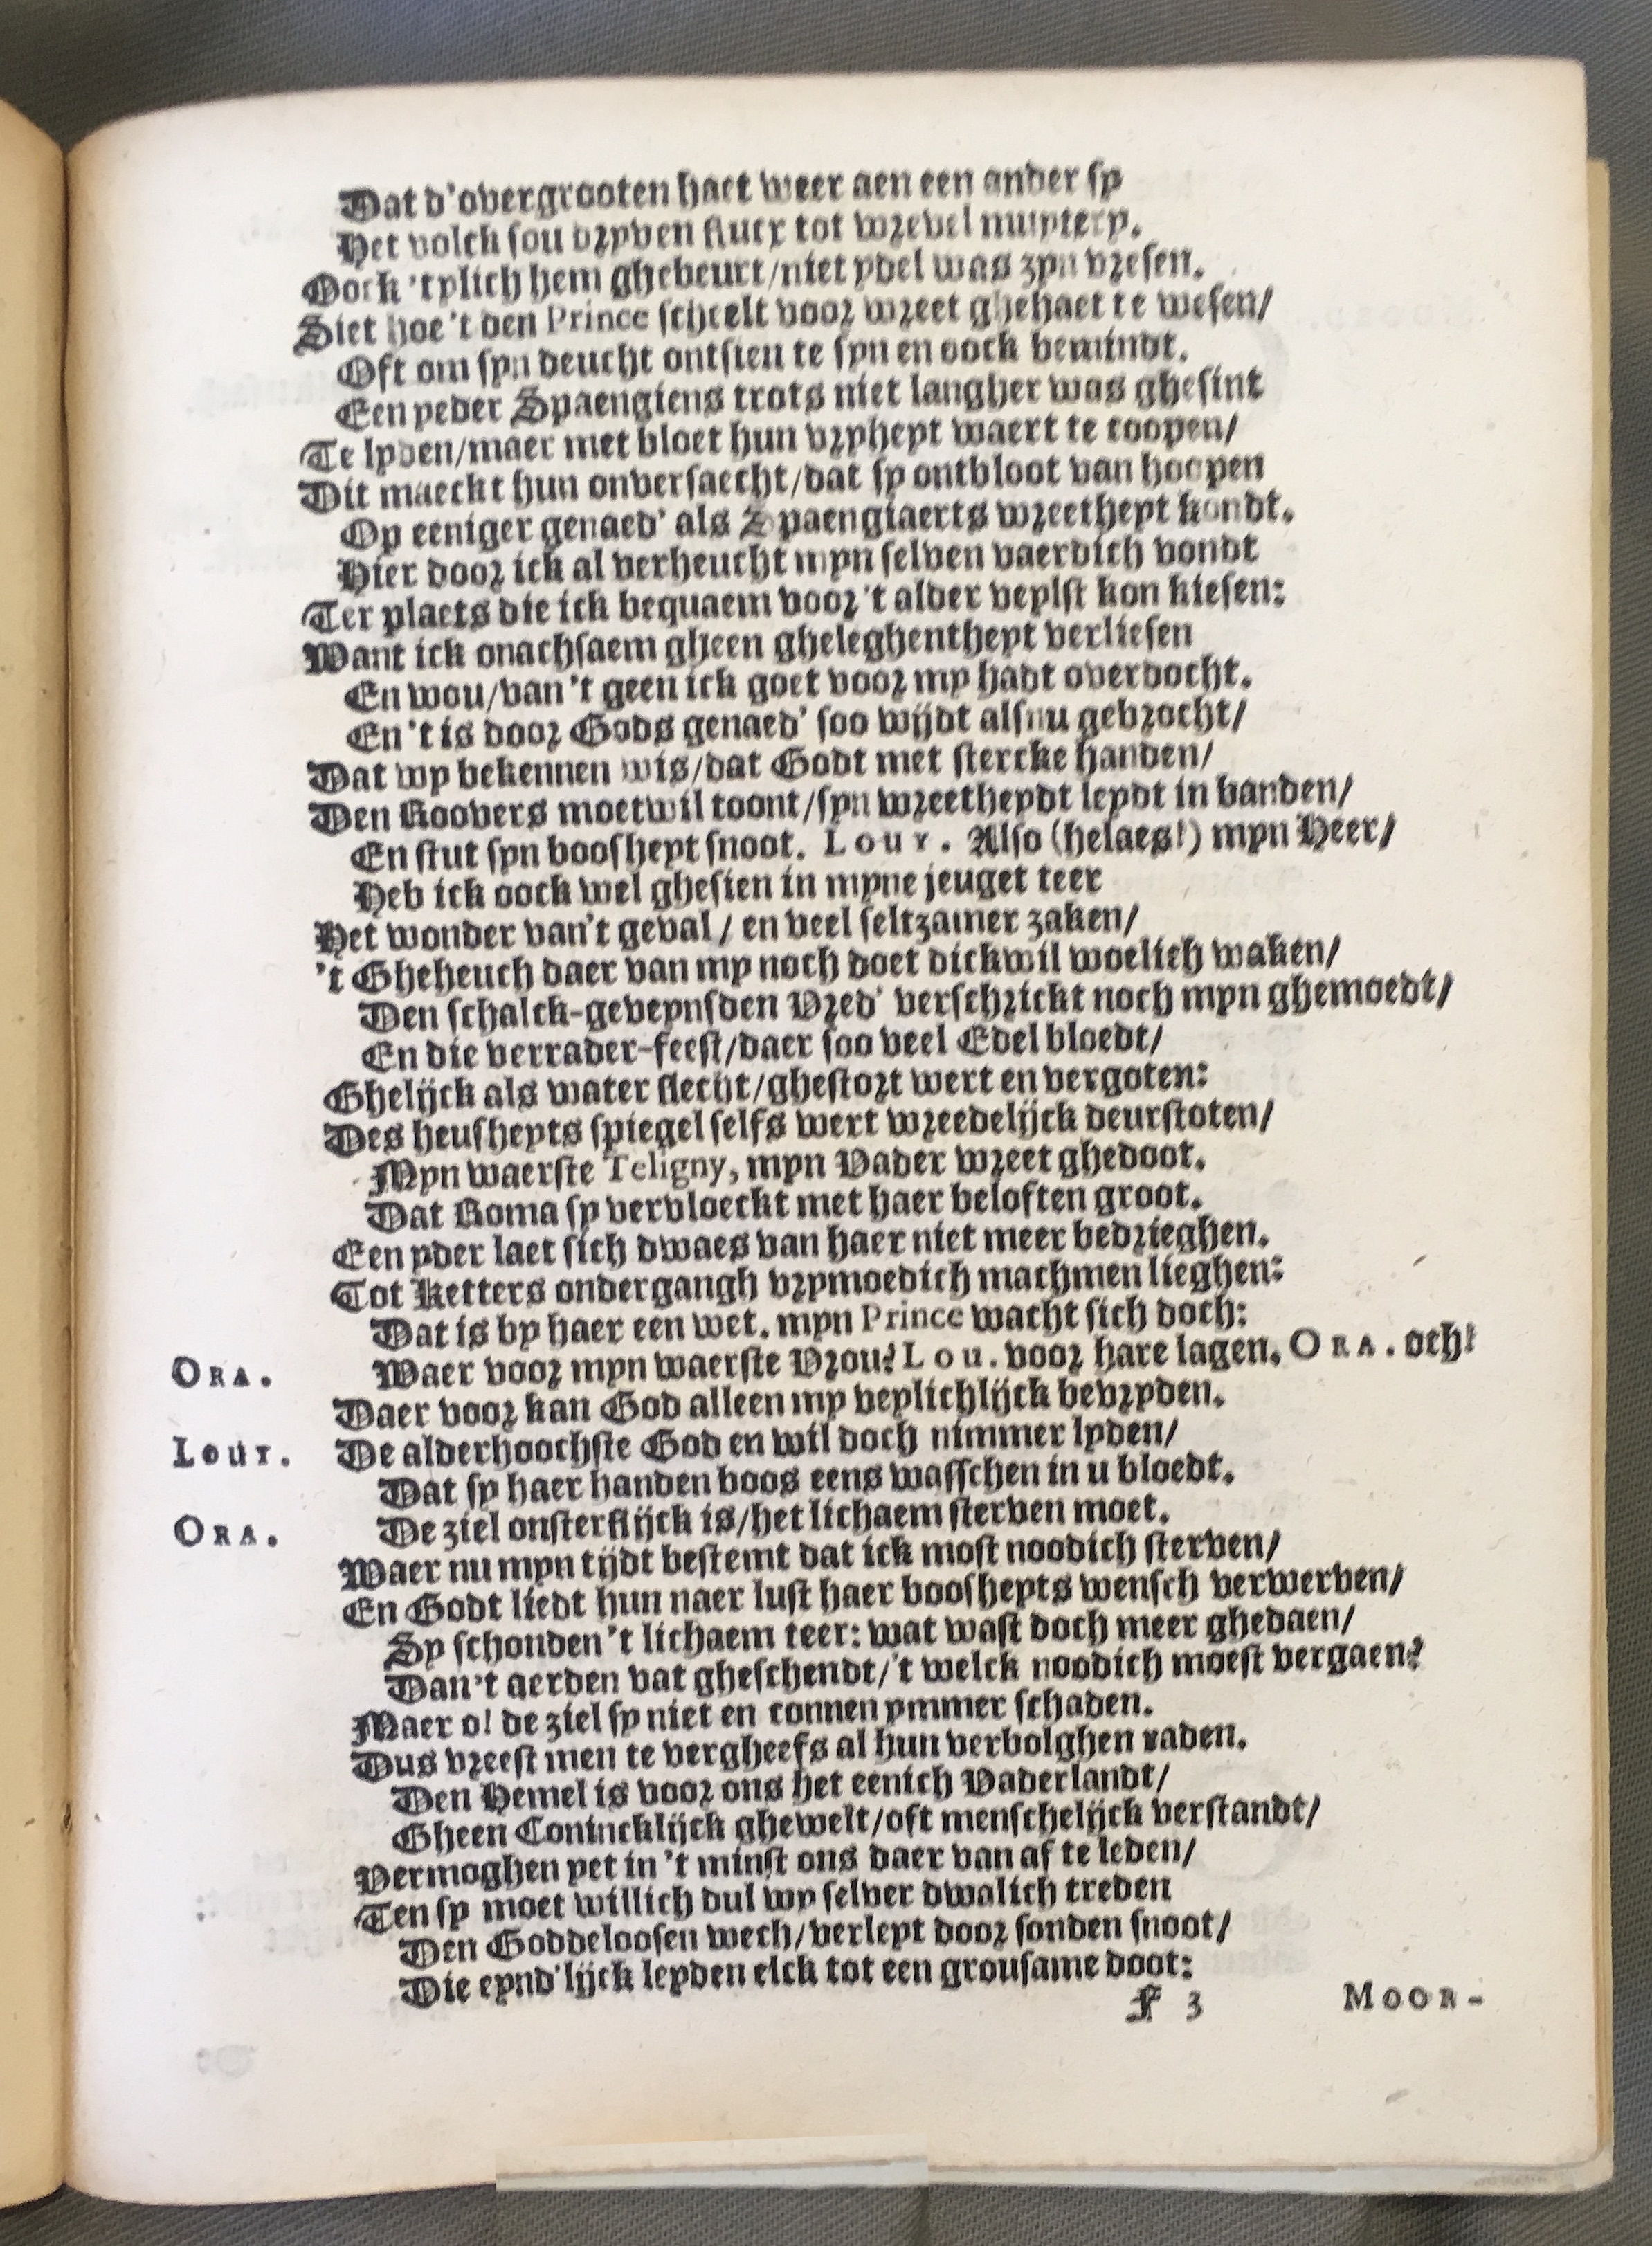 Dat d'overgrooten haet weer aen een ander sy
Het volck sou dryven flucx tot wrevel muytery.
Oock 'tylich hem ghebeurt/niet ydel was zyn vresen.
Siet hoe 't den Prince scheelt voor wreet ghehaet te wesen/
Oft om syn deucht ontsien te syn en oock bemindt.
Een yeder Spaengiens trots niet langher was ghesint
Te lyden/maer met bloet hun vryheyt waert te coopen/
Dit maeckt hun onversaecht/dat sy ontbloot van hoopen
Op eeniger genaed' als Spaengiaerts wreetheyt kondt.
Hier door ick al verheucht myn selven vaerdich vondt
Ter plaets die ick bequaem voor 't alder veylst kon kiesen:
Want ick onachsaem gheen gheleghentheyt verliesen
En wou/van 't geen ick goet voor my hadt overdocht.
En 't is door Gods genaed' soo wijdt alsnu gebrocht/
Dat wy bekennen wis/dat Godt met stercke handen/
Den Roovers moetwil toont/syn wreetheydt leydt in banden/
En stut syn boosheyt snoot. Louy. Also (helaes!) myn Heer/
Heb ick oock wel ghesien in myne jeuget teer
Het wonder van't geval/ en veel seltzamer zaken/
't Gheheuch daer van my noch doet dickwil woelich waken/
Den schalck-geveynsden Vred' verschrickt noch myn ghemoedt/
En die verrader-feest/daer soo veel Edel bloedt/
Ghelijck als water slecht/ghestort wert en vergoten:
Des heusheyts spiegel selfs wert wreedelijck deurstoten/
Myn waerste Teligny, myn Vader wreet ghedoot.
Dat Roma sy vervloeckt met haer beloften groot.
Een yder laet sich dwaes van haer niet meer bedrieghen.
Tot Ketters ondergangh vrymoedich machmen lieghen:
Dat is by haer een wet. myn Prince wacht sich doch:
ORA. Waer voor myn waerste Vrou? Lou. voor hare lagen. ORA. och!
Daer voor kan God alleen my veylichlijck bevryden.
Louy. De alderhoochste God en wil doch nimmer lyden/
Dat sy haer handen boos eens wasschen in u bloedt.
ORA. De ziel onsterflijck is/het lichaem sterven moet.
Waer nu myn tijdt bestemt dat ick most noodich sterven/
En Godt liedt hun naer lust haer boosheyts wensch verwerven/
Sy schonden 't lichaem teer: wat wast doch meer ghedaen/
Dan't aerden vat gheschendt/'t welck noodich moest vergaen?
Maer o! de ziel sy niet en connen ymmer schaden.
Dus vreest men te vergheefs al hun verbolghen raden.
Den Hemel is voor ons het eenich Vaderlandt/
Gheen Conincklijck ghewelt/oft menschelijck verstandt/
Vermoghen yet in 't minst ons daer van af te leden/
Ten sy moet willich dul wy selver dwalich treden
Den Goddeloosen wech/verleyt door sonden snoot/
Die eynd'lijck leyden elck tot een grousame doot:
F 3 MOOR-